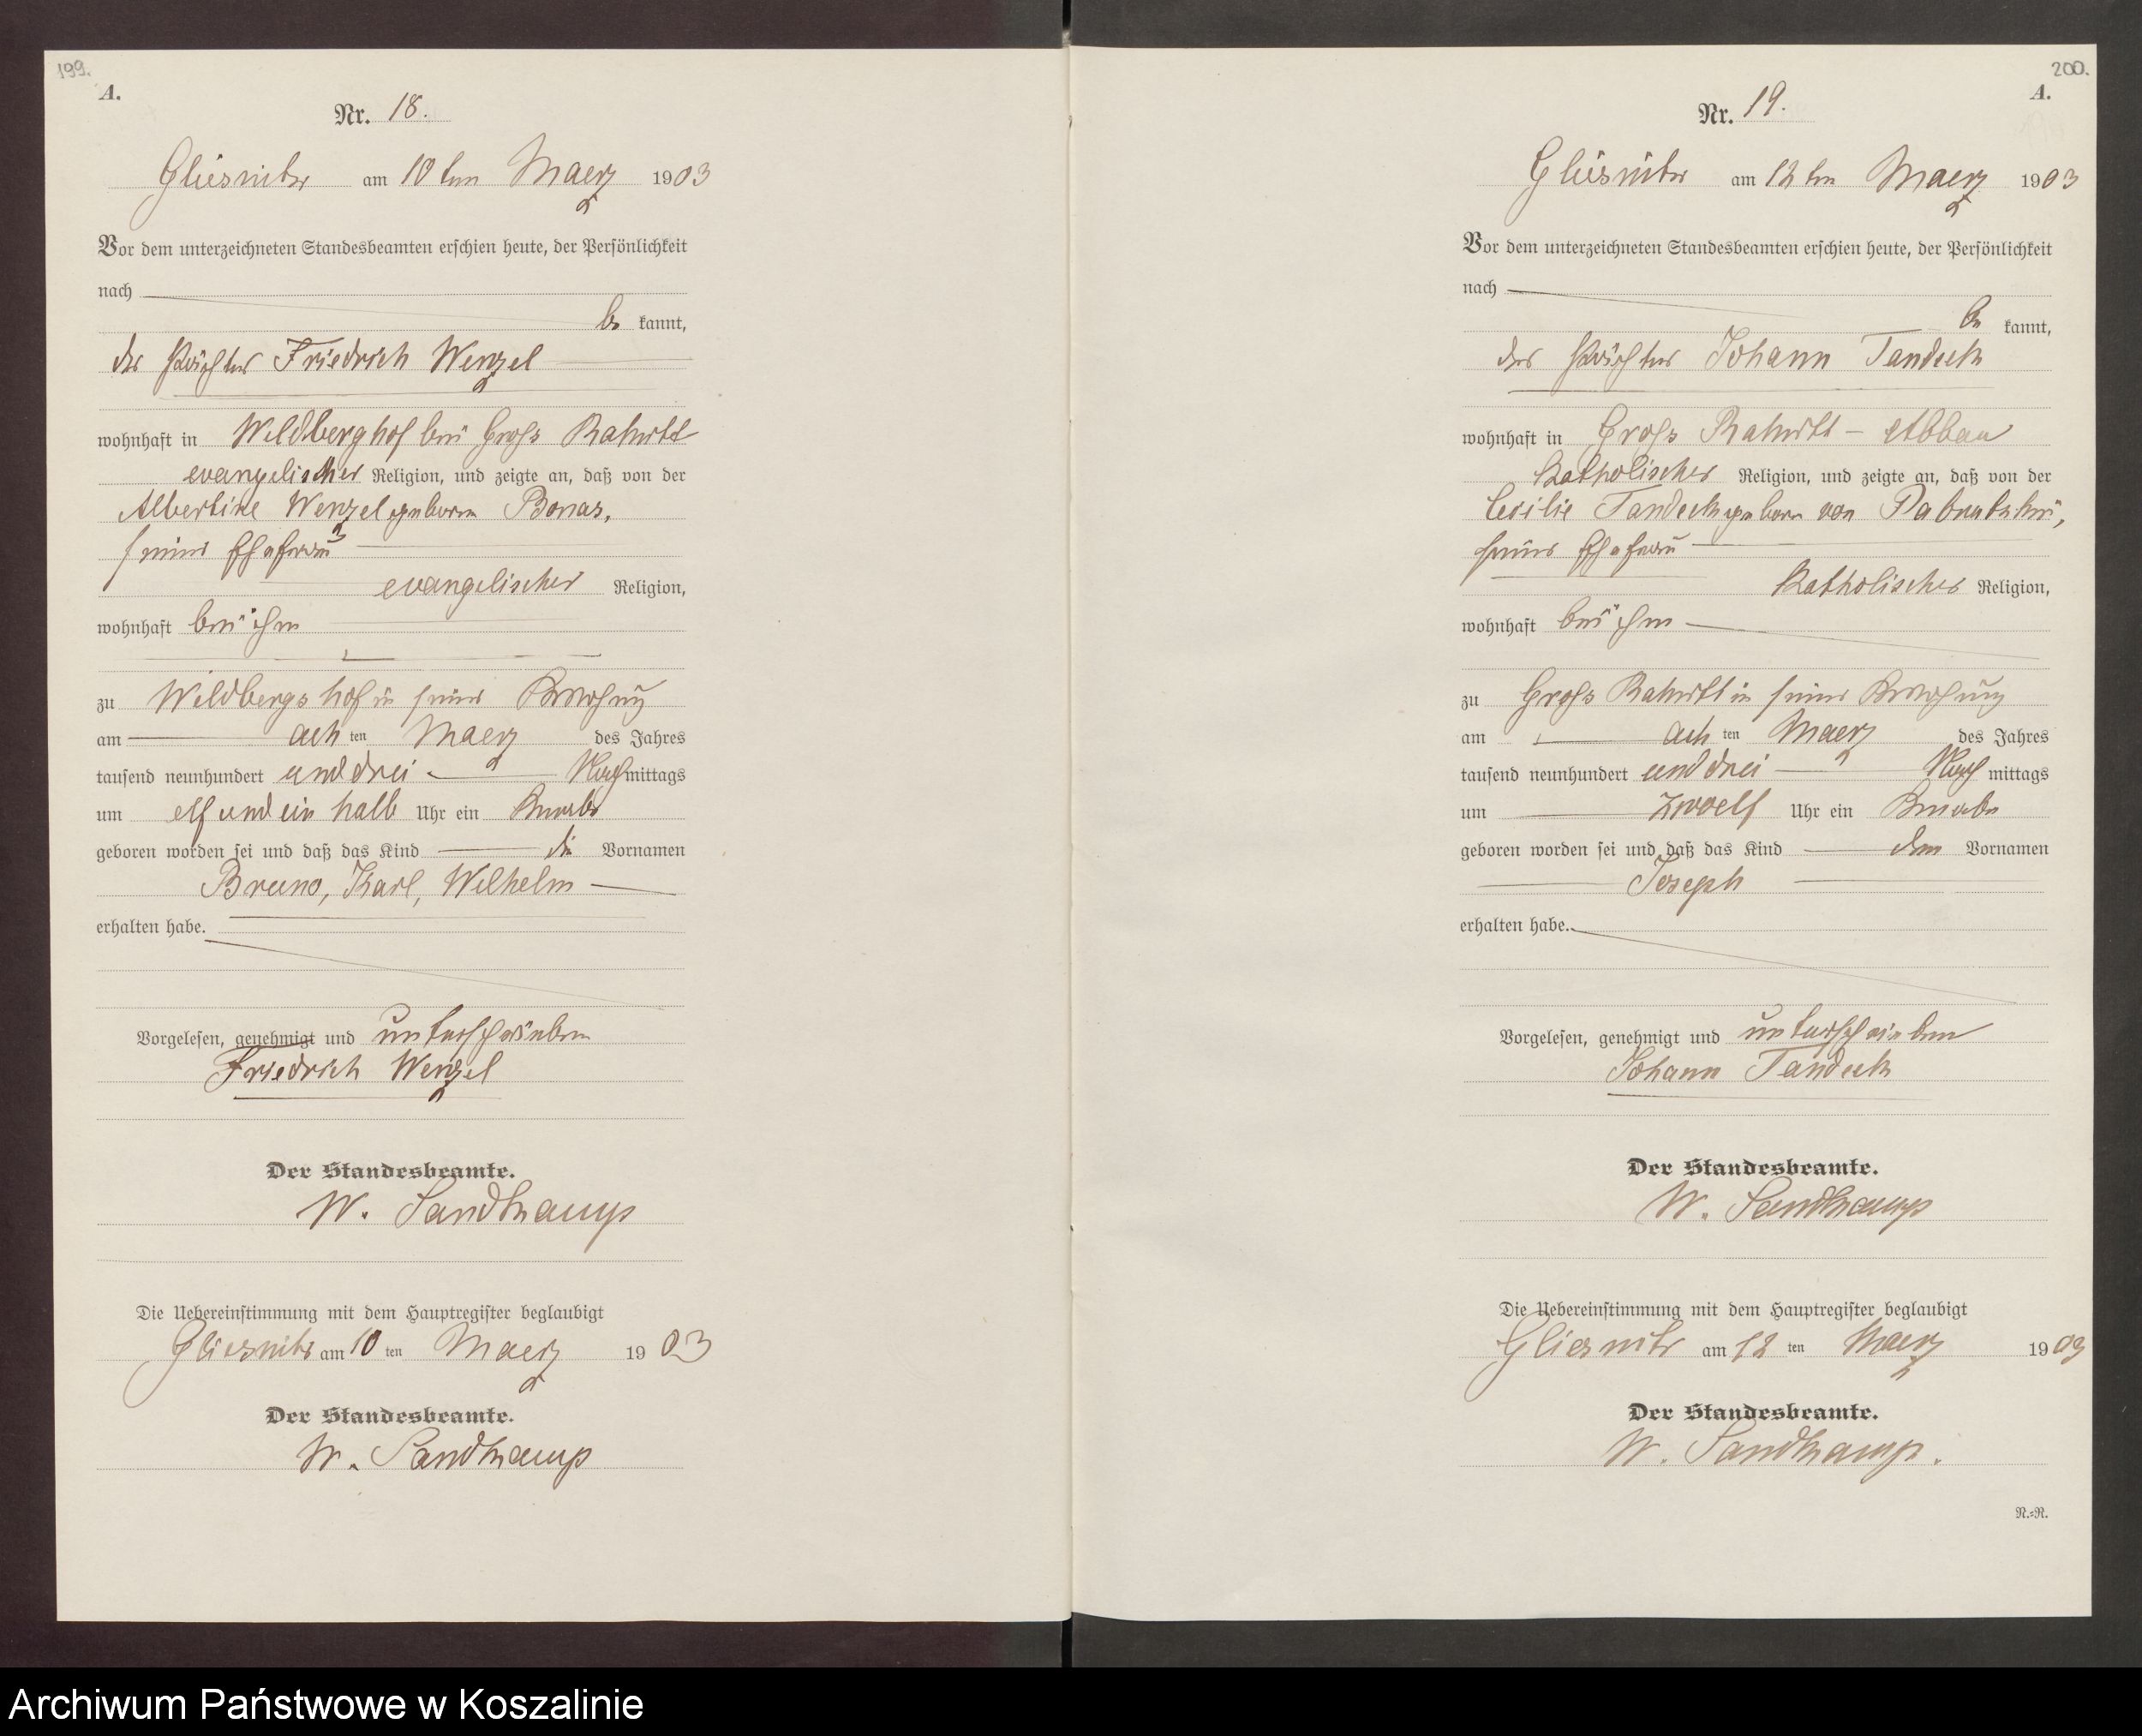 199.
A.
Nr. 18.
Gliesnitz am 10ten Maerz 1903
Vor dem unterzeichneten Standesbeamten erschien heute, der Persönlichkeit
nach
be kannt,
der Pächter Friedrich Wenzel
wohnhaft in Wildberghof bei Gross Rakitt
evangelischer Religion, und zeigte an, daß von der
Albertine Wenzel geboren Bonas,
seiner Ehefrau
evangelischer Religion,
wohnhaft bei ihm
zu Wildbergshof in seiner Bewohnung
am ach ten Maerz des Jahres
tausend neunhundert und drei Nach mittags
um elf und ein halb Uhr ein Knabe
geboren worden sei und daß das Kind die Vornamen
Bruno, Karl, Wilhelm
erhalten habe.
Vorgelesen, genehmigt und unterschrieben
Friedrich Wenzel
Der Standesbeamte.
W. Sandkamp
Die Uebereinstimmung mit dem Hauptregister beglaubigt
Gliesnitz am 10 ten Maerz 1903
Der Standesbeamte.
W. Sandkamp
200.
A.
Nr. 19.
Gliesnitz am 12ten Maerz 1903
Vor dem unterzeichneten Standesbeamten erschien heute, der Persönlichkeit
nach
be kannt,
der Pächter Johann Tandeck
wohnhaft in Gross Rakitt - Abbau
Katholischer Religion, und zeigte an, daß von der
Cecilie Tandeck geboren von
seiner Ehefrau
Katholischer Religion,
wohnhaft bei ihm
zu Gross Rakitt in seiner Bewohnung
am ach ten Maerz des Jahres
tausend neunhundert und drei Nach mittags
um zwoelf Uhr ein Knabe
geboren worden sei und daß das Kind den Vornamen
Joseph
erhalten habe.
Vorgelesen, genehmigt und unterschrieben
Johann Tandeck
Der Standesbeamte.
W. Sandkamp
Die Uebereinstimmung mit dem Hauptregister beglaubigt
Gliesnitz am 12 ten Maerz 1903
Der Standesbeamte.
W. Sandkamp.
N.=R.
Archiwum Państwowe w Koszalinie